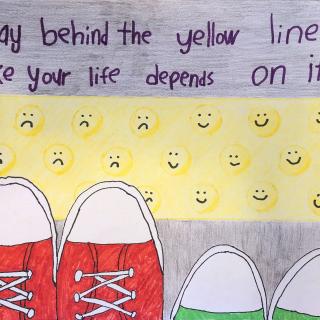 ay behind the yellow line
ke your life depends on it